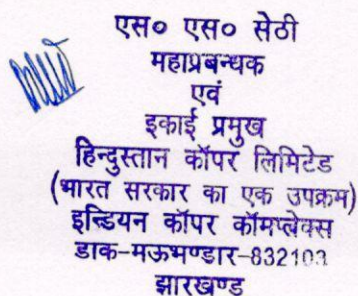 एस० एस० सेठी
महाप्रबन्धक
एवं
इकाई प्रमुख
हिन्दुस्तान कॉपर लिमिटेड
(भारत सरकार का एक उपक्रम)
इन्डियन कॉपर कॉमप्लेक्स
डाक-मऊभण्डार-832103
झारखण्ड